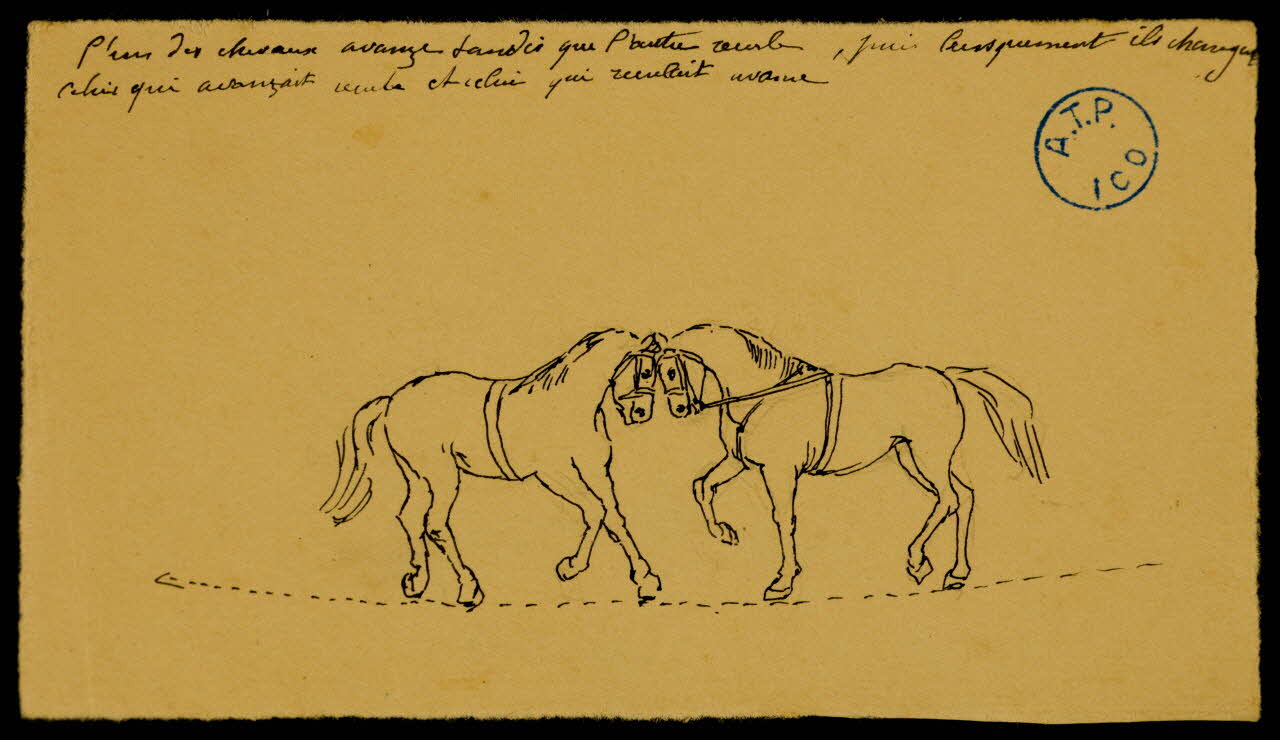 l'un des chevaux avance tandis que l'autre recule, puis brusquement ils changent
celui qui avançait recule et celui qui reculait avance
A.T.P.
ICO